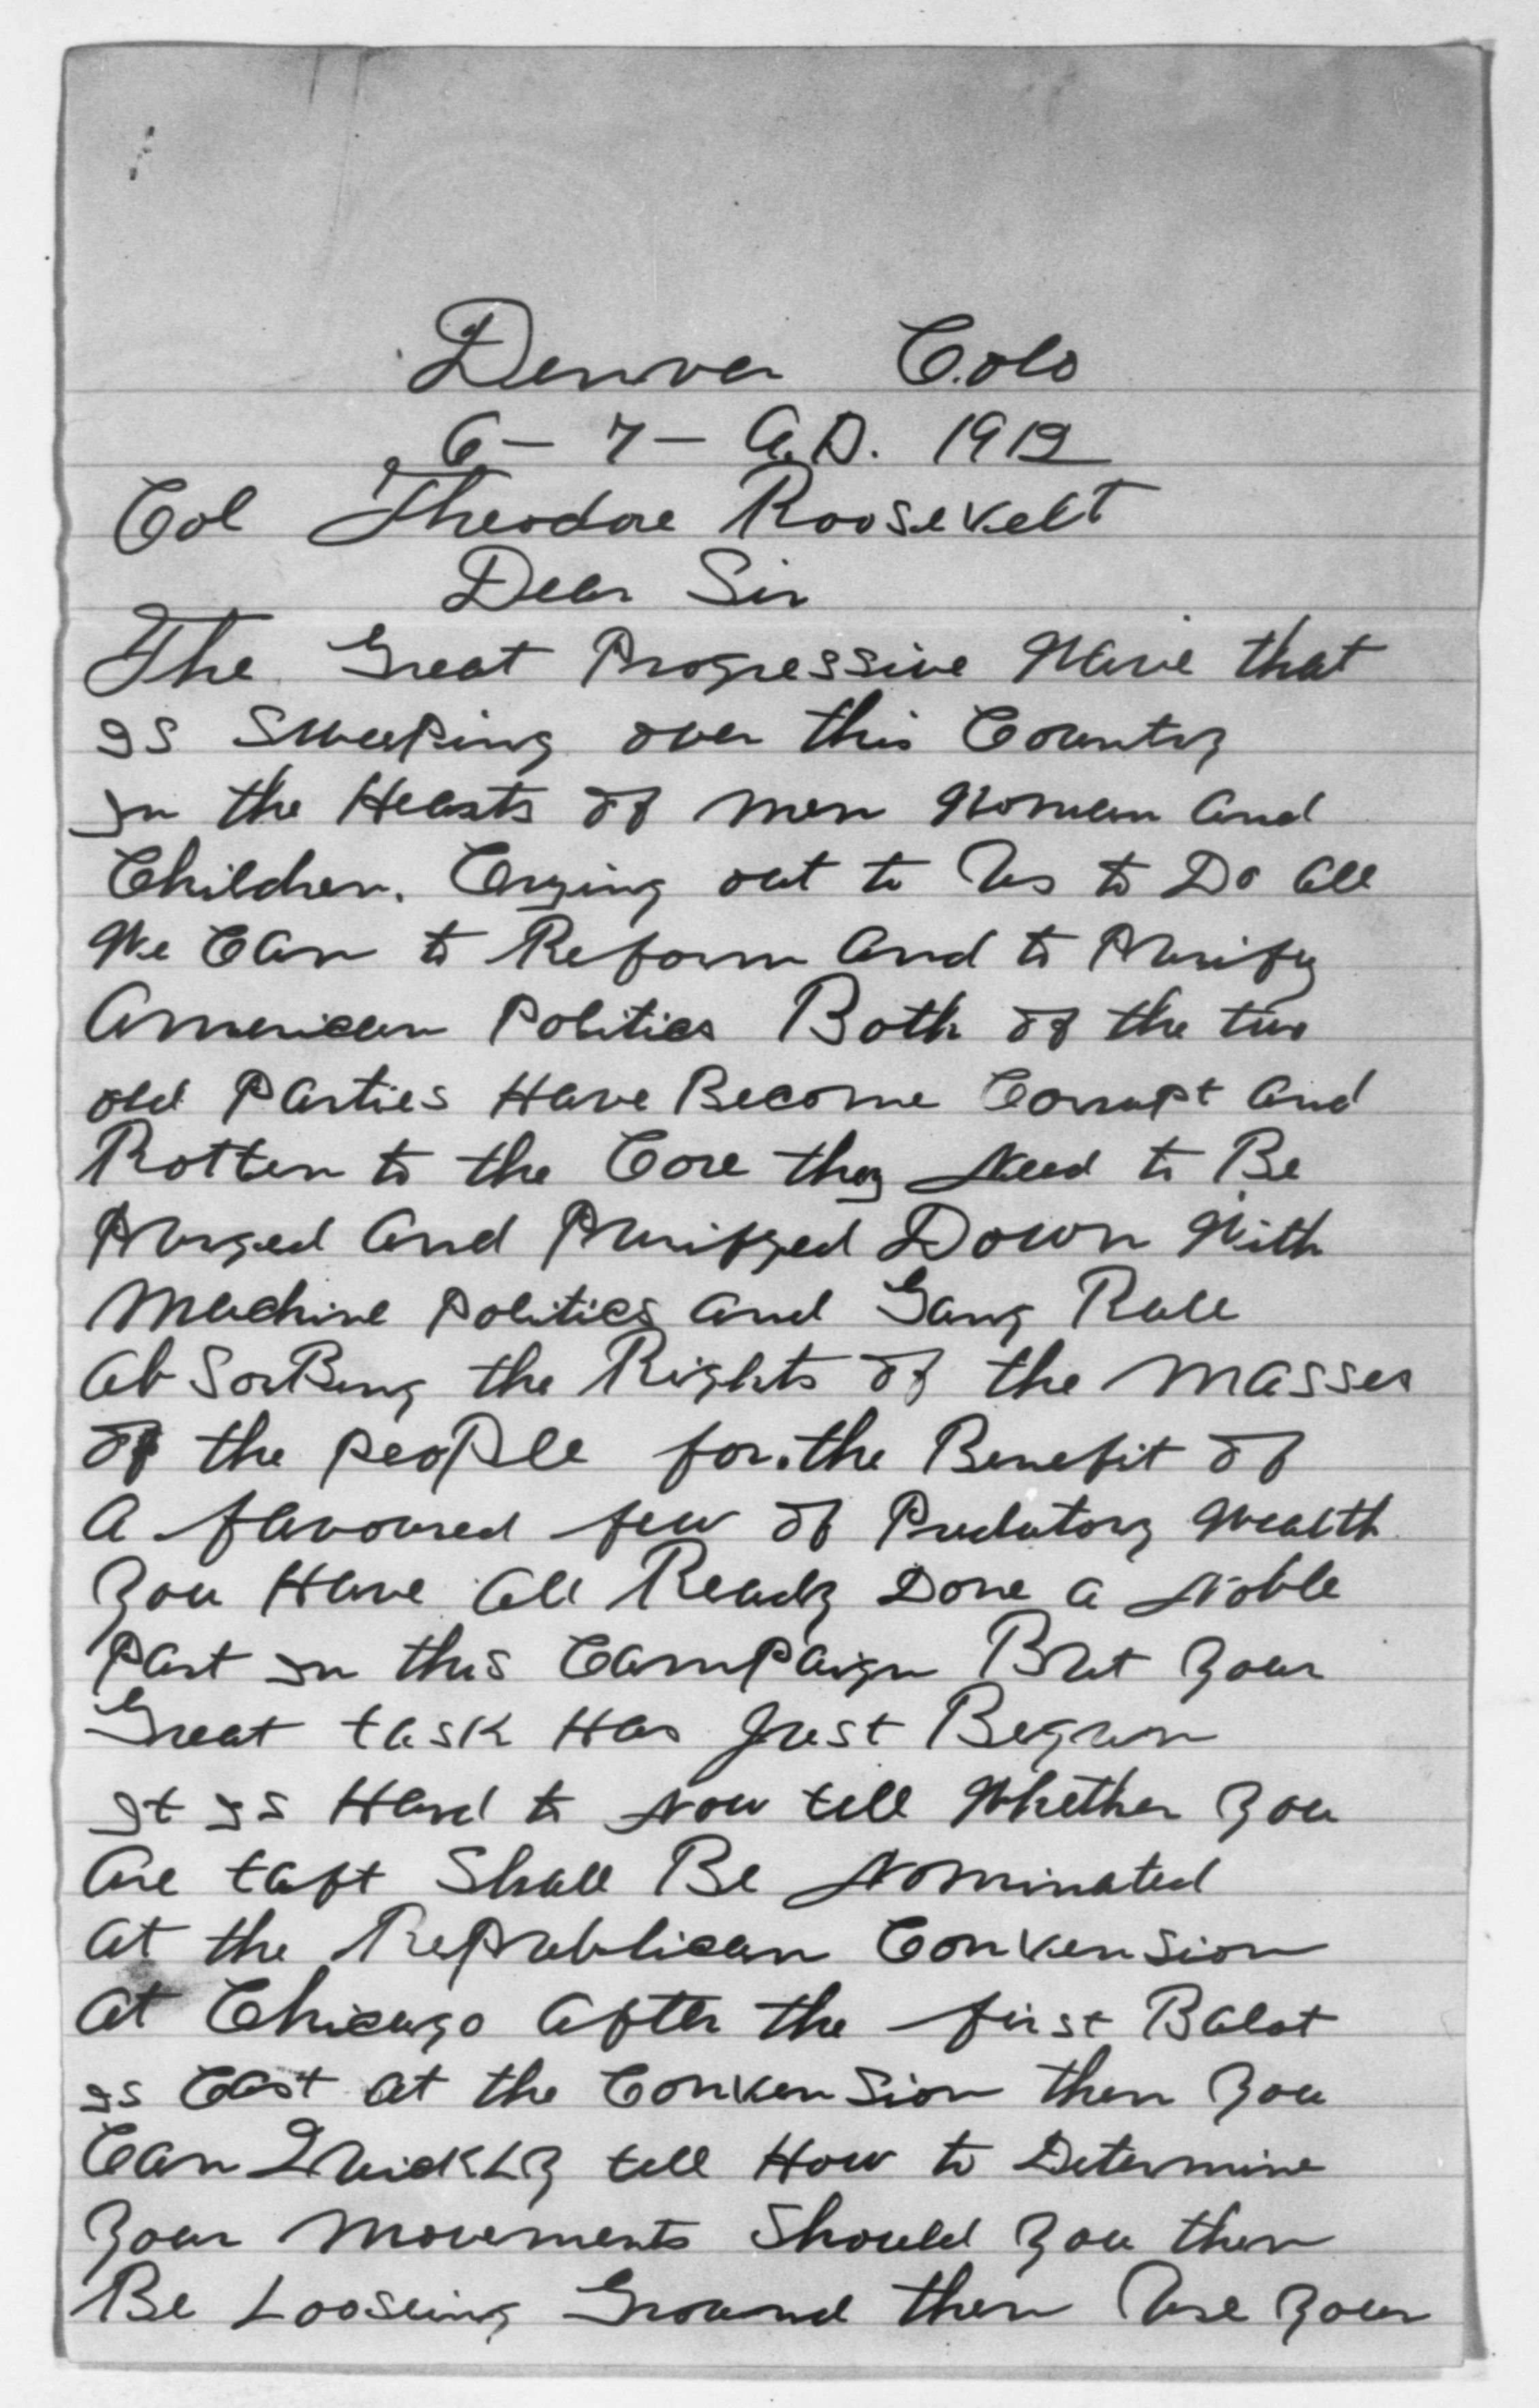 Denver Colo
6 - 7 - A.D. 1912
Col Theodore Roosevelt
Dear Sir
The Great Progressive Wave that
Is Sweeping over this Country
In the Hearts of men Woman and
Children. Crying out to Us to Do all
We Can to Reform and to Purify
American Politics Both of the two
old Parties Have Become Corrupt and
Rotten to the Core they Need to Be
Purged and Purifyed Down With
Machine Politics and Gang Rule
Ab Sorbing the Rights of the masses
of the people for the Benefit of
a flavoured few of Predatory Wealth
You Have All Ready Done a Noble
Part In this CamPaign But your
Great task Has Just Begun
It Is Hard to Now tell Whether you
are taft Shall Be Nominated
at the Republican Convension
at Chicago after the first Balot
Is Cast at the Convension then you
Can Quickly tell How to Determine
your movements Should you then
Be Looseing Ground then Use your